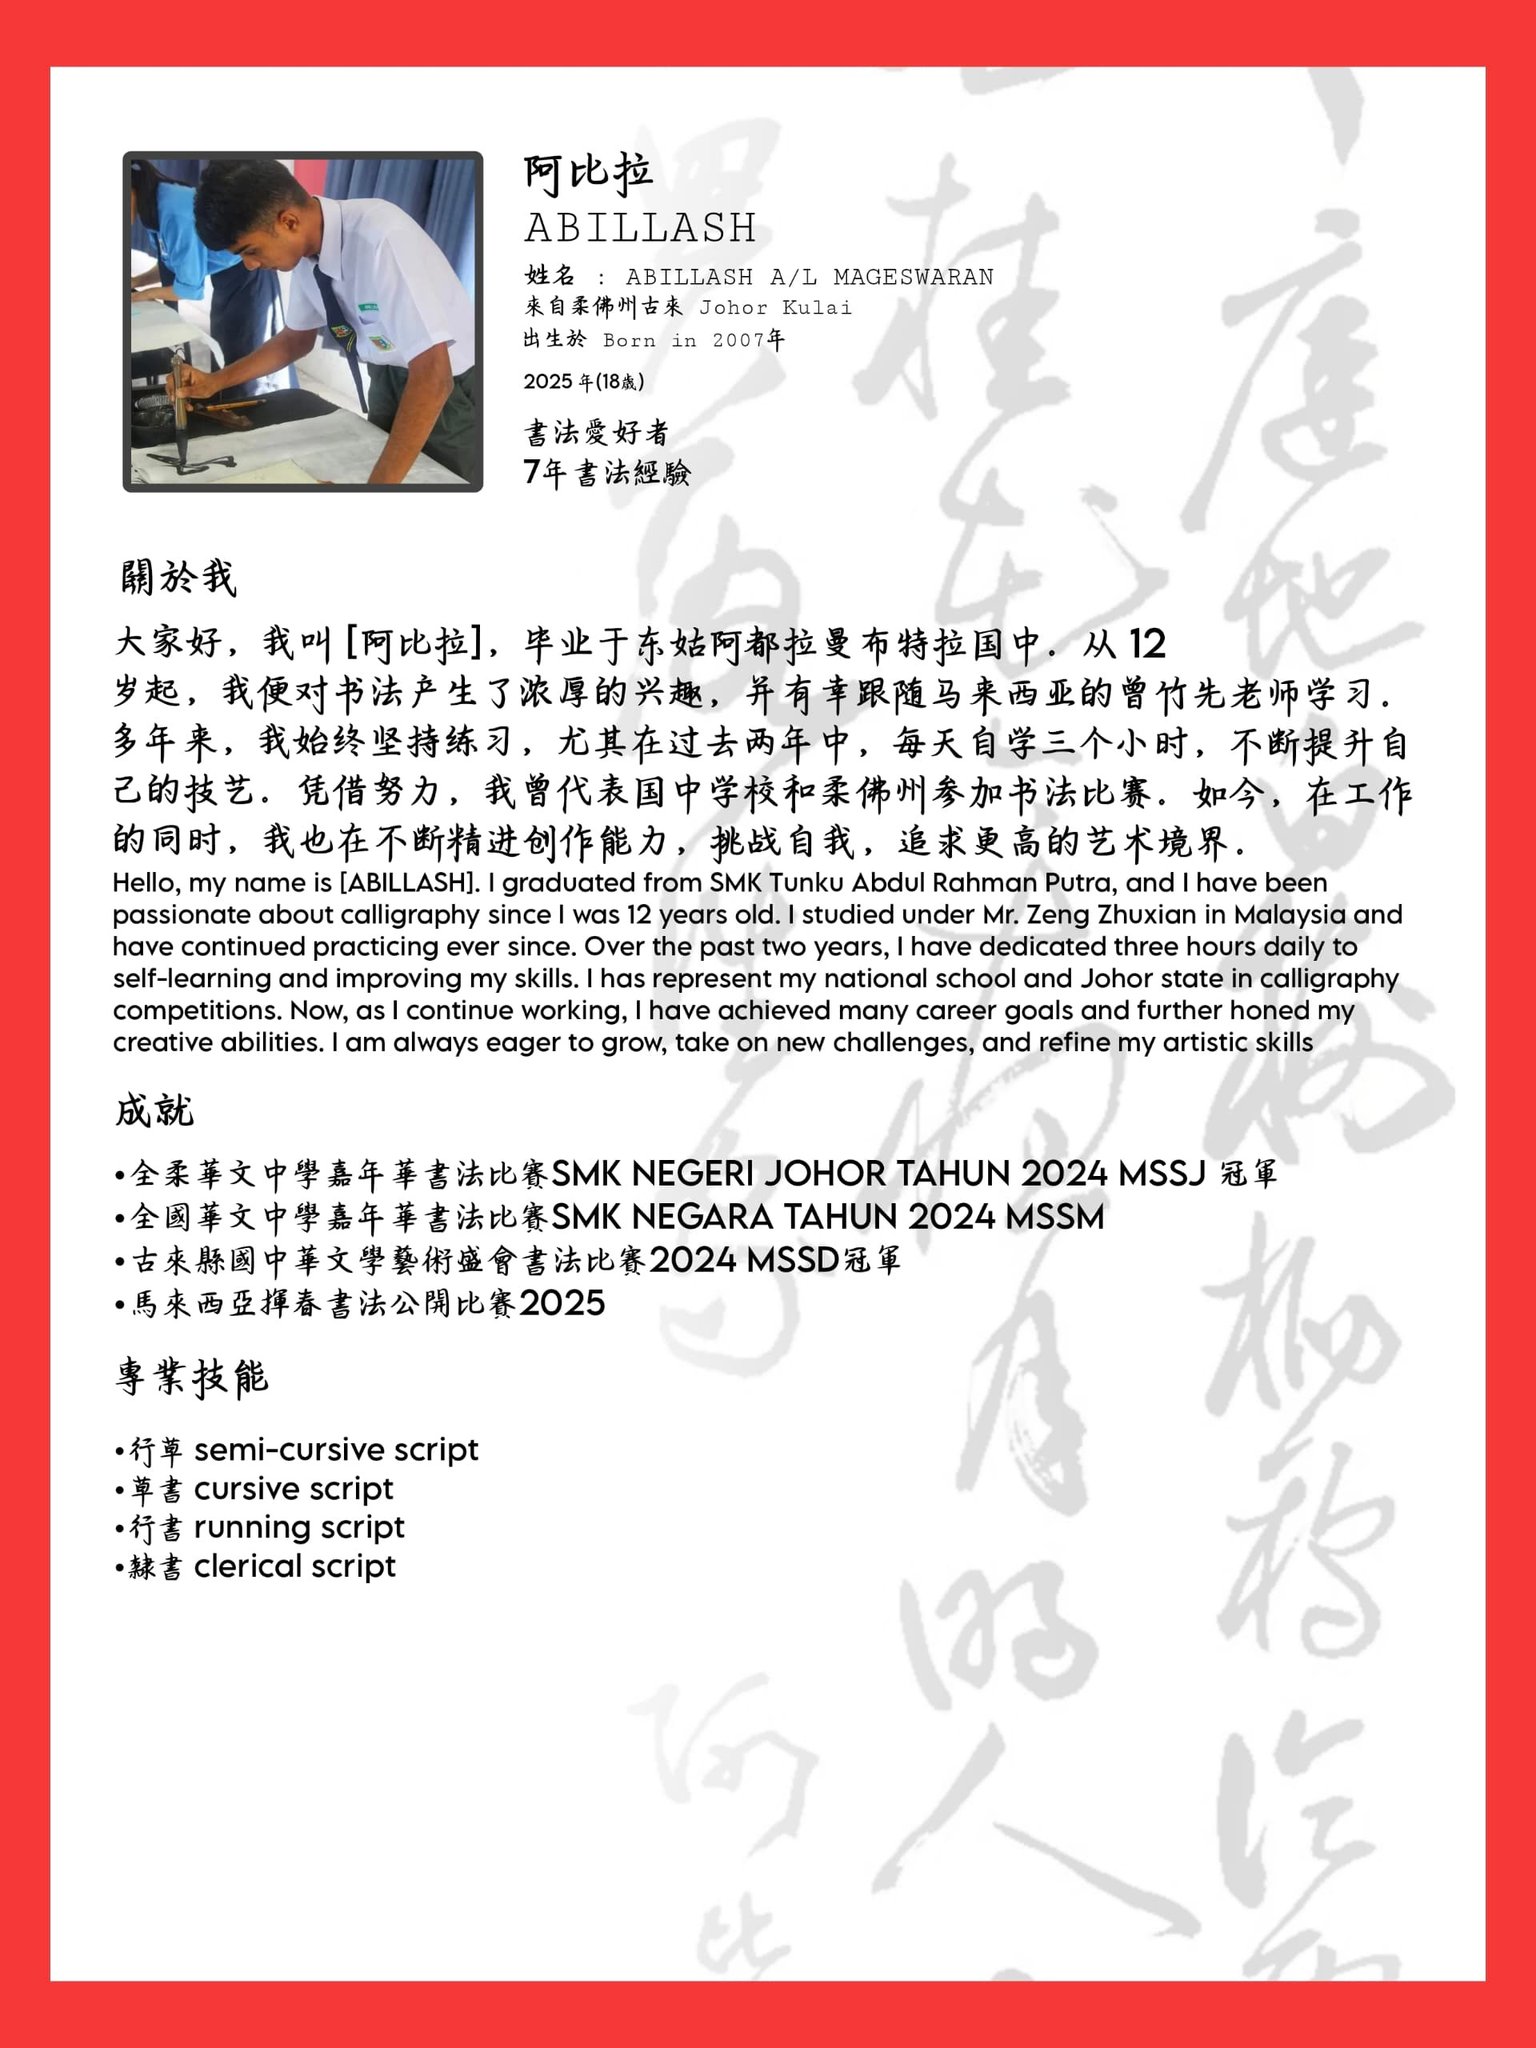 阿比拉
ABILLASH
姓名 : ABILLASH A/L MAGESWARAN
來自柔佛州古來 Johor Kulai
出生於 Born in 2007年
2025 年(18歲)
書法愛好者
7年書法經驗
關於我
大家好，我叫 [阿比拉]，毕业于东姑阿都拉曼布特拉国中．从 12
岁起，我便对书法产生了浓厚的兴趣，并有幸跟随马来西亚的曾竹先老师学习．
多年来，我始终坚持练习，尤其在过去两年中，每天自学三个小时，不断提升自
己的技艺．凭借努力，我曾代表国中学校和柔佛州参加书法比赛．如今，在工作
的同时，我也在不断精进创作能力，挑战自我，追求更高的艺术境界．
Hello, my name is [ABILLASH]. I graduated from SMK Tunku Abdul Rahman Putra, and I have been
passionate about calligraphy since I was 12 years old. I studied under Mr. Zeng Zhuxian in Malaysia and
have continued practicing ever since. Over the past two years, I have dedicated three hours daily to
self-learning and improving my skills. I has represent my national school and Johor state in calligraphy
competitions. Now, as I continue working, I have achieved many career goals and further honed my
creative abilities. I am always eager to grow, take on new challenges, and refine my artistic skills
成就
•全柔華文中學嘉年華書法比賽SMK NEGERI JOHOR TAHUN 2024 MSSJ 冠軍
•全國華文中學嘉年華書法比賽SMK NEGARA TAHUN 2024 MSSM
•古來縣國中華文學藝術盛會書法比賽2024 MSSD冠軍
•馬來西亞揮春書法公開比賽2025
專業技能
•行草 semi-cursive script
•草書 cursive script
•行書 running script
•隸書 clerical script